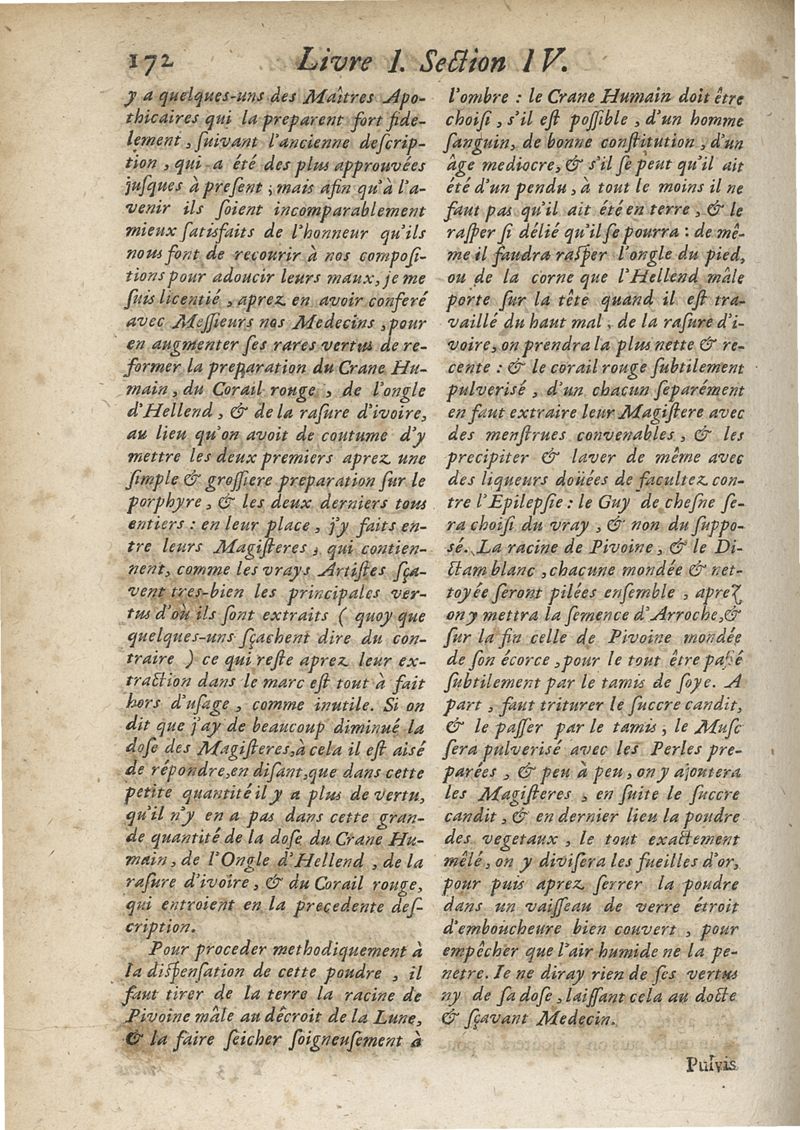 172 Livre I. Section IV.
y a quelques-uns des Maîtres Apo-
thicaires qui la preparent fort fide-
lement, ſuivant l'ancienne deſcrip-
tion, qui a été des plus approuvées
juſques à preſent; mais afin qu'à l'a-
venir ils ſoient incomparablement
mieux ſatisfaits de l'honneur qu'ils
nous font de recourir à nos compoſi-
tions pour adoucir leurs maux, je me
ſuis licentié, aprez en avoir conferé
avec Meſſieurs nos Medecins, pour
en augmenter ſes rares vertus de re-
former la preparation du Crane Hu-
main, du Corail rouge, de l'ongle
d'Hellend, & de la raſure d'ivoire,
au lieu qu'on avoit de coutume d'y
mettre les deux premiers aprez une
ſimple & groſſiere preparation ſur le
porphyre, & les deux derniers tous
entiers: en leur place, j'y faits en-
tre leurs Magiſteres, qui contien-
nent, comme les vrays Artiſtes ſça-
vent tres-bien les principales ver-
tus d'où ils ſont extraits ( quoy que
quelques-uns ſçachent dire du con-
traire ) ce qui reſte aprez leur ex-
traction dans le marc eſt tout à fait
hors d'uſage, comme inutile. Si on
dit que j'ay de beaucoup diminué la
doſe des Magiſteres, à cela il est aisé
de répondre, en diſant, que dans cette
petite quantité il y a plus de vertu,
qu'il n'y en a pas dans cette gran-
de quantité de la doſe du Crane Hu-
main, de l'Ongle d'Hellend, de la
raſure d'ivoire, & du Corail rouge,
qui entroient en la precedente deſ-
cription.
Pour proceder methodiquement à
la diſpenſation de cette poudre, il
faut tirer de la terre la racine de
Pivoine mâle au décroit de la Lune,
& la faire ſeicher ſoigneuſement à
l'ombre: le Crane Humain doit être
choiſi, s'il eſt poſſible, d'un homme
ſanguin, de bonne conſtitution, d'un
âge mediocre, & s'il ſe peut qu'il ait
été d'un pendu, à tout le moins il ne
faut pas qu'il ait été en terre, & le
raſper ſi délié qu'il ſe pourra: de mê-
me il faudra raſper l'ongle du pied,
ou de la corne que l'Hellend mâle
porte ſur la tête quand il eſt tra-
vaillé du haut mal, de la raſure d'i-
voire, on prendra la plus nette & re-
cente: & le corail rouge ſubtilement
pulverisé, d'un chacun ſeparément
en faut extraire leur Magiſtere avec
des menſtrues convenables, & les
precipiter & laver de même avec
des liqueurs doüées de facultez con-
tre l'Epilepſie: le Guy de cheſne ſe-
ra choiſi du vray, & non du ſuppo-
sé. La racine de Pivoine, & le Di-
ctam blanc, chacune mondée & net-
toyée ſeront pilées enſemble, aprez
on y mettra la ſemence d'Arroche, &
ſur la fin celle de Pivoine mondée
de ſon écorce, pour le tout être paſſé
ſubtilement par le tamis de ſoye. A
part, faut triturer le ſuccre candit,
& le paſſer par le tamis; le Muſc
ſera pulverisé avec les Perles pre-
parées, & peu à peu, on y ajoutera
les Magiſteres, en ſuite le ſuccre
candit, & en dernier lieu la poudre
des vegetaux, le tout exactement
mêlé, on y diviſera les fueilles d'or,
pour puis aprez ſerrer la poudre
dans un vaiſſeau de verre étroit
d'emboucheure bien couvert, pour
empêcher que l'air humide ne la pe-
netre. Ie ne diray rien de ſes vertus
ny de ſa doſe, laiſſant cela au docte
& ſçavant Medecin.
Pulvis